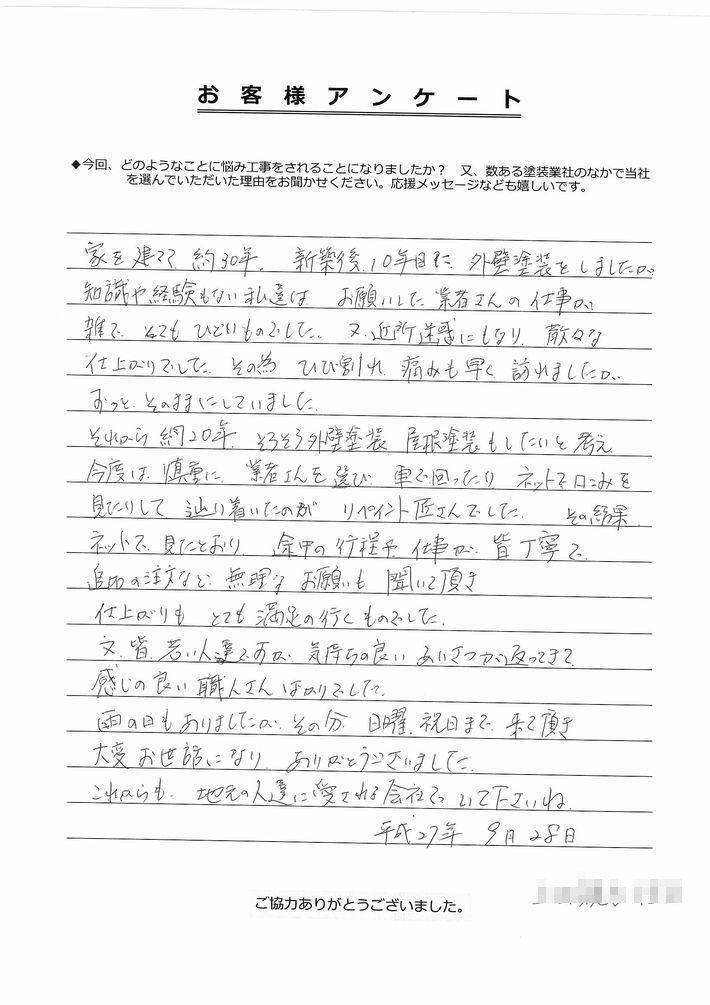 お客様アンケート
◆今回、どのようなことに悩み工事をされることになりましたか？ 又、数ある塗装業社のなかで当社
を選んでいただいた理由をお聞かせください。応援メッセージなども嬉しいです。
家を建てて、約30年。新築後、10年目に、外壁塗装をしましたが、
知識や経験もない私達は、お願いした業者さんの仕事が、
雑で、とてもひどいものでした。又、近所迷惑にもなり、散々な
仕上がりでした。その為、ひび割れ、痛みも早く訪れましたが、
ずっと、そのままにしていました。
それから約20年、そろそろ外壁塗装、屋根塗装もしたいと考え、
今度は、慎重に、業者さんを選び、車で回ったり、ネットで口コミを
見たりして、辿り着いたのが、リペイント匠さんでした。その結果、
ネットで、見たとおり、途中の行程や、仕事が、皆丁寧で、
追加の注文など、無理なお願いも、聞いて頂き
仕上がりも、とても満足の行くものでした。
又、皆、若い人達ですが、気持ちの良いあいさつが返ってきて、
感じの良い職人さんばかりでした。
雨の日もありましたが、その分、日曜、祝日まで、来て頂き
大変お世話になり、ありがとうございました。
これからも、地元の人達に愛される会社でいて下さいね。
平成27年 9月28日
ご協力ありがとうございました。